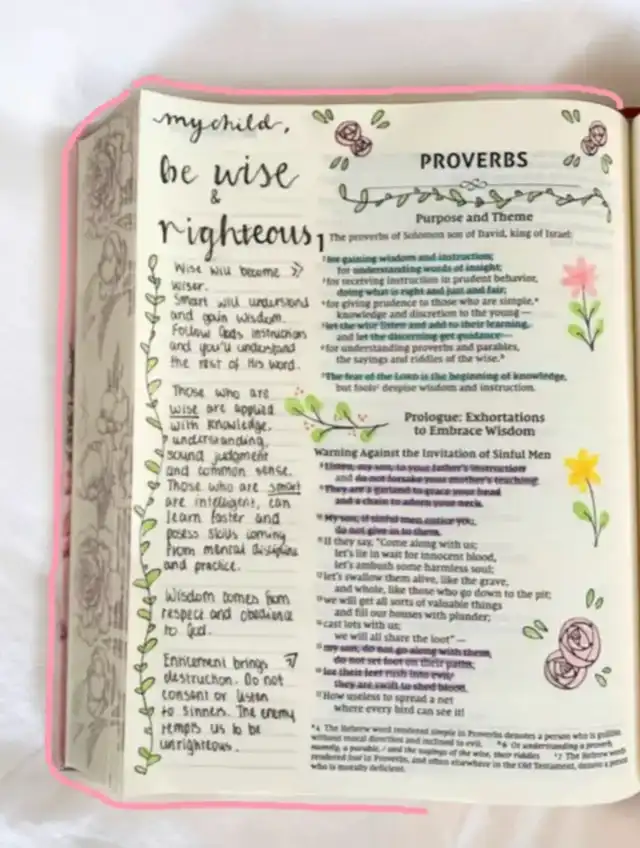 my child,
be wise
&
righteous
Wise will become
wiser.
Smart will understand
and gain wisdom.
Follow Gods instruction
and you'll understand
the rest of His word.
Those who are
wise are applied
with knowledge,
understanding,
sound judgment
and common sense.
Those who are smart
are intelligent, can
learn faster and
posess skills coming
from mental discipline
and practice.
Wisdom comes from
respect and obedience
to God.
Enticement brings
destruction. Do not
consent or listen
to sinners. The enemy
tempts us to be
unrighteous.
PROVERBS
Purpose and Theme
1 The proverbs of Solomon son of David, king of Israel:
2 for gaining wisdom and instruction;
for understanding words of insight;
3 for receiving instruction in prudent behavior,
doing what is right and just and fair;
4 for giving prudence to those who are simple,a
knowledge and discretion to the young—
5 let the wise listen and add to their learning,
and let the discerning get guidance—
6 for understanding proverbs and parables,
the sayings and riddles of the wise.b
7 The fear of the LORD is the beginning of knowledge,
but foolsc despise wisdom and instruction.
Prologue: Exhortations
to Embrace Wisdom
Warning Against the Invitation of Sinful Men
8 Listen, my son, to your father's instruction
and do not forsake your mother's teaching.
9 They are a garland to grace your head
and a chain to adorn your neck.
10 My son, if sinful men entice you,
do not give in to them.
11 If they say, "Come along with us;
let's lie in wait for innocent blood,
let's ambush some harmless soul;
12 let's swallow them alive, like the grave,
and whole, like those who go down to the pit;
13 we will get all sorts of valuable things
and fill our houses with plunder;
14 cast lots with us;
we will all share the loot"—
15 my son, do not go along with them,
do not set foot on their paths;
16 for their feet rush into evil,
they are swift to shed blood.
17 How useless to spread a net
where every bird can see it!
a4 The Hebrew word rendered simple in Proverbs denotes a person who is gullible,
without moral direction and inclined to evil. b6 Or understanding a proverb,
namely, a parable, / and the sayings of the wise, their riddles c7 The Hebrew words
rendered fool in Proverbs, and often elsewhere in the Old Testament, denote a person
who is morally deficient.